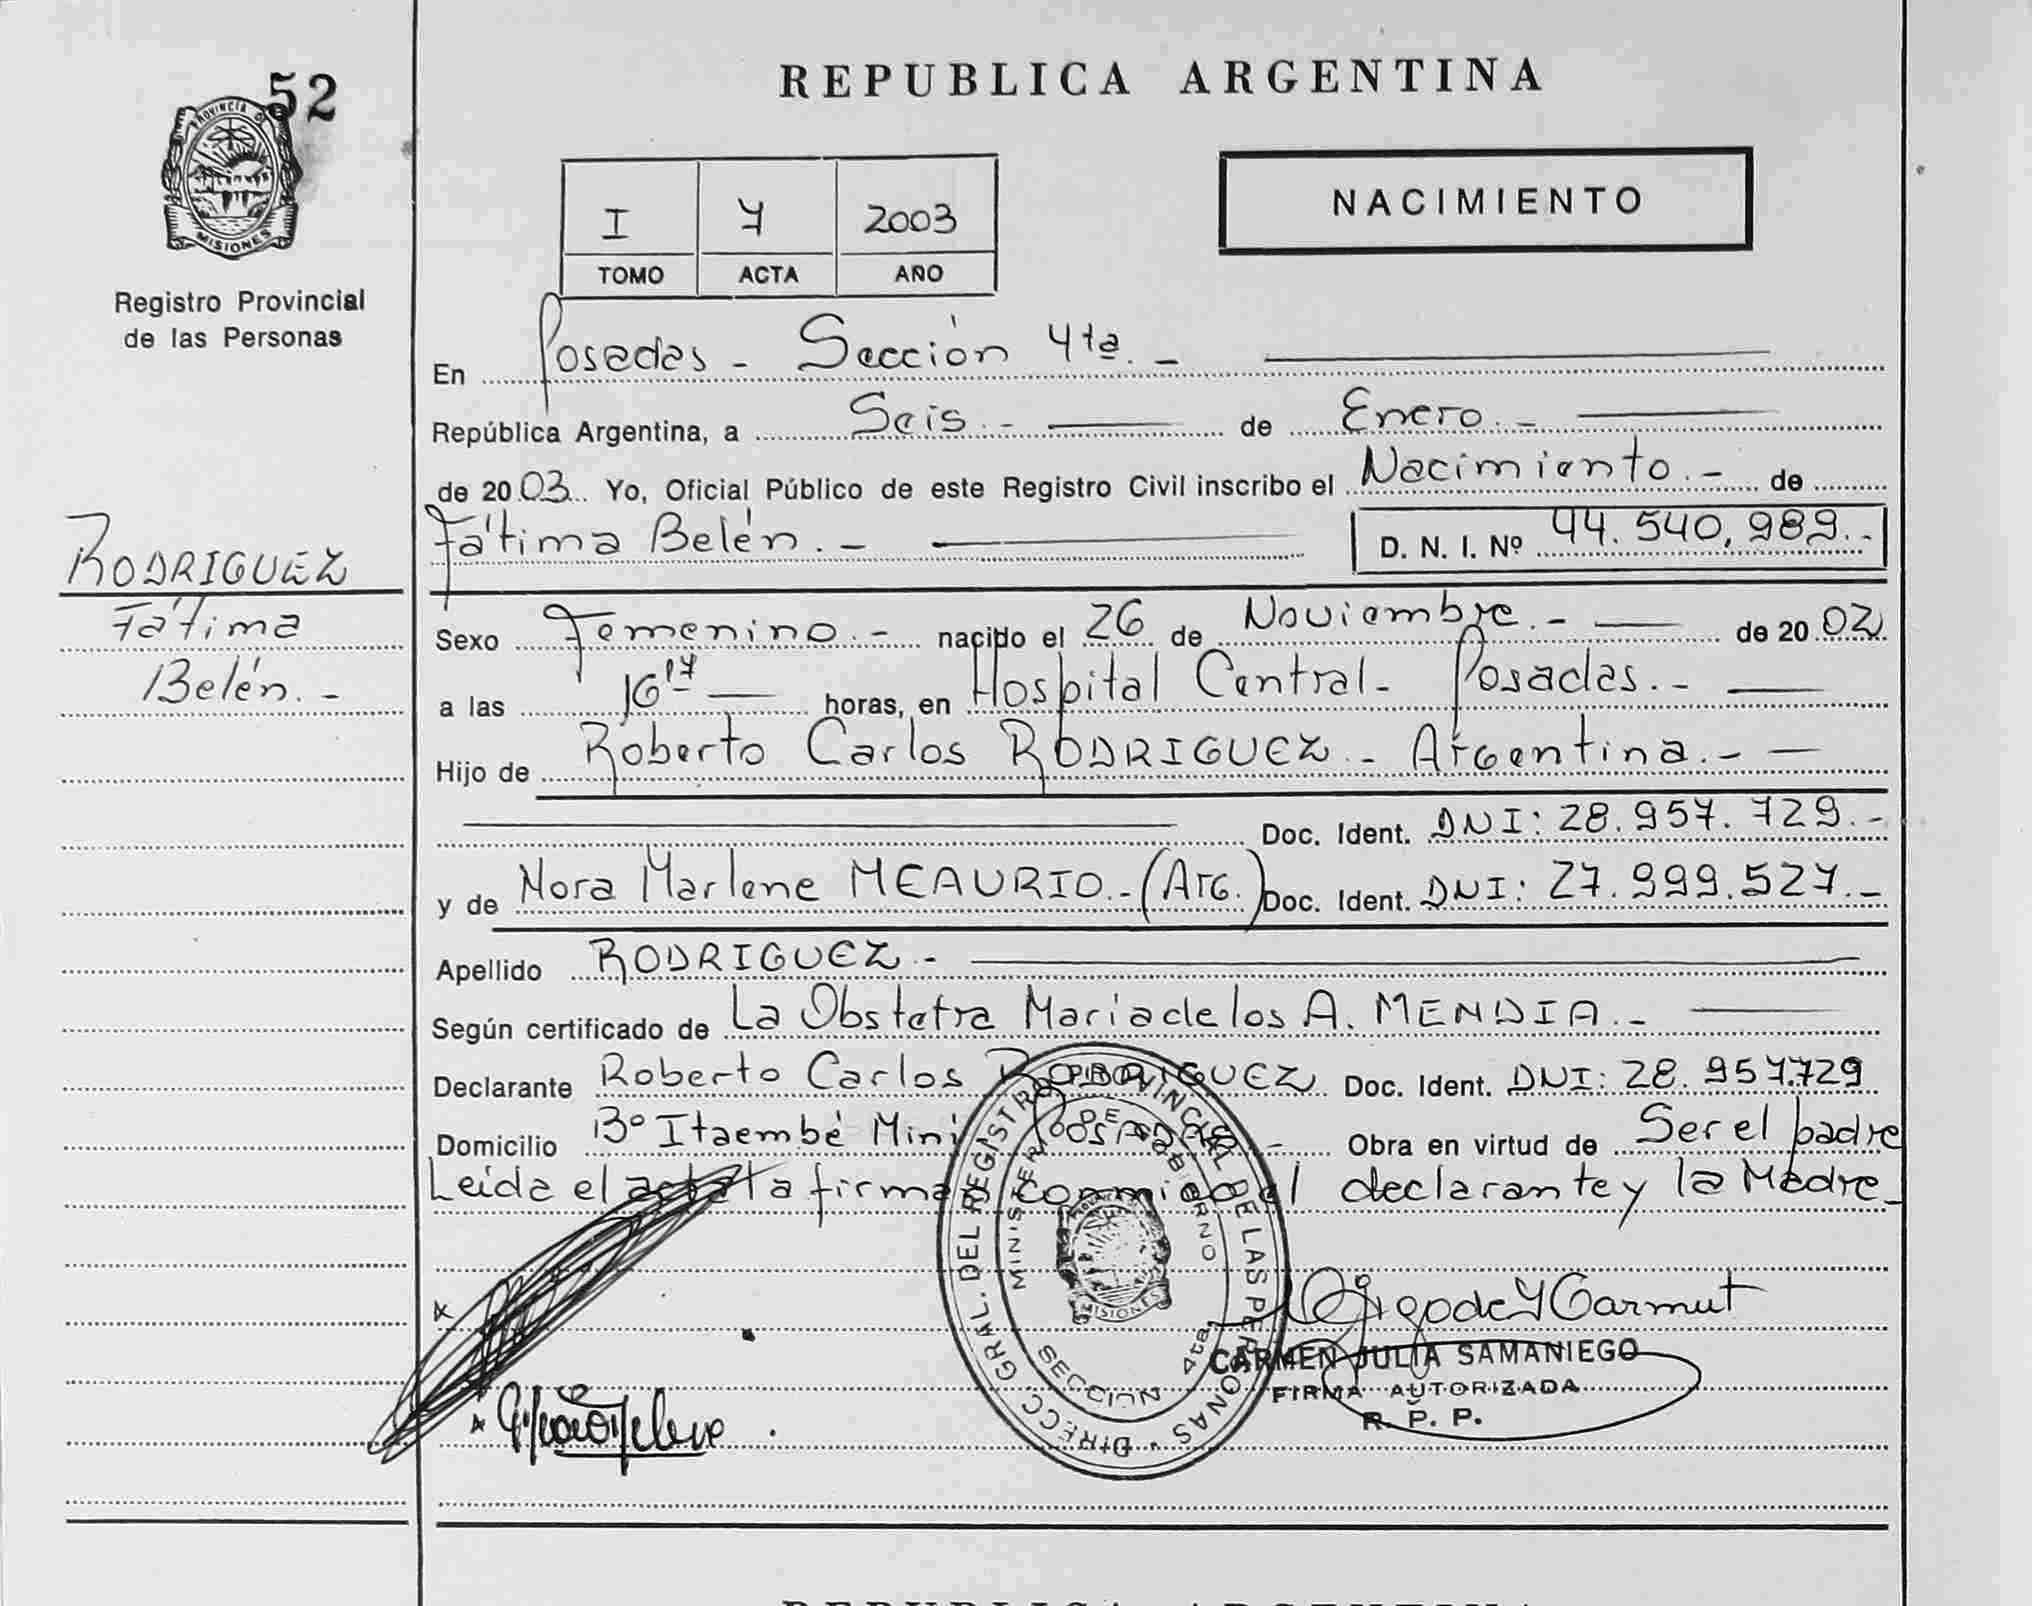 52
PROVINCIA DE
MISIONES
Registro Provincial
de las Personas
RODRIGUEZ
Fátima
Belén.-
REPUBLICA ARGENTINA
I 7 2003
TOMO ACTA AÑO
NACIMIENTO
En Posadas - Sección 4ta.-
República Argentina, a Seis.- de Enero.-
de 2003. Yo, Oficial Público de este Registro Civil inscribo el Nacimiento.- de
Fátima Belén.- D. N. I. Nº 44.540,989.-
Sexo Femenino.- nacido el 26 de Noviembre.- de 2002
a las 16 17 horas, en Hospital Central- Posadas.-
Hijo de Roberto Carlos RODRIGUEZ - Argentina.-
Doc. Ident. DNI: 28.957.729.-
y de Nora Marlene MEAURIO.-(Arg.) Doc. Ident. DNI: 27.999.527.-
Apellido RODRIGUEZ -
Según certificado de La Obstetra Maria de los A. MENDIA.-
Declarante Roberto Carlos RODRIGUEZ Doc. Ident. DNI: 28.957.729
Domicilio Bº Itaembé Miní Posadas.- Obra en virtud de Ser el padre
Leída el acta la firman conmigo el declarante y la Madre-
DIRECC. GRAL. DEL REGISTRO PROVINCIAL DE LAS PERSONAS
MINISTERIO DE GOBIERNO
MISIONES
SECCION 4ta.
CARMEN JULIA SAMANIEGO
FIRMA AUTORIZADA
R. P. P.
REPUBLICA ARGENTINA